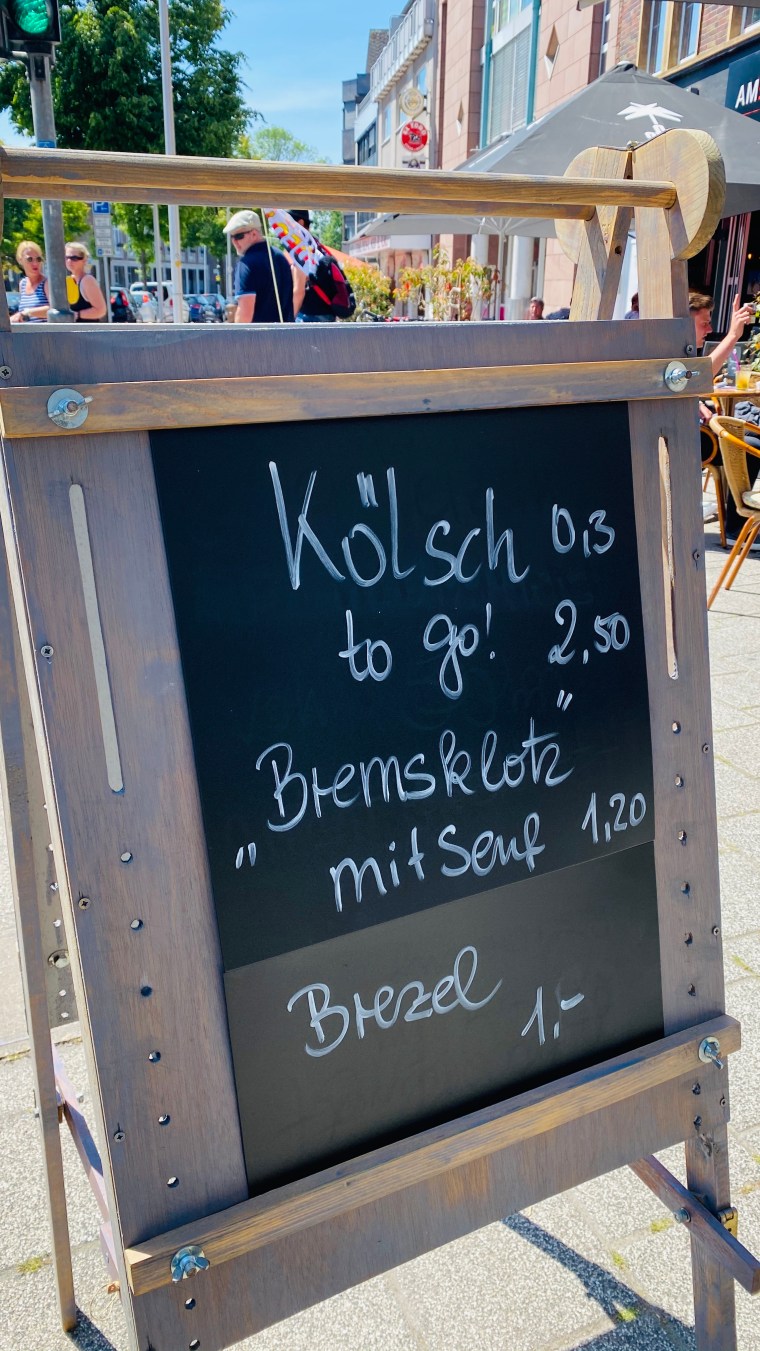 AM
Kölsch 0,3
to go! 2,50
„Bremsklotz"
mit Senf 1,20
Brezel 1,-